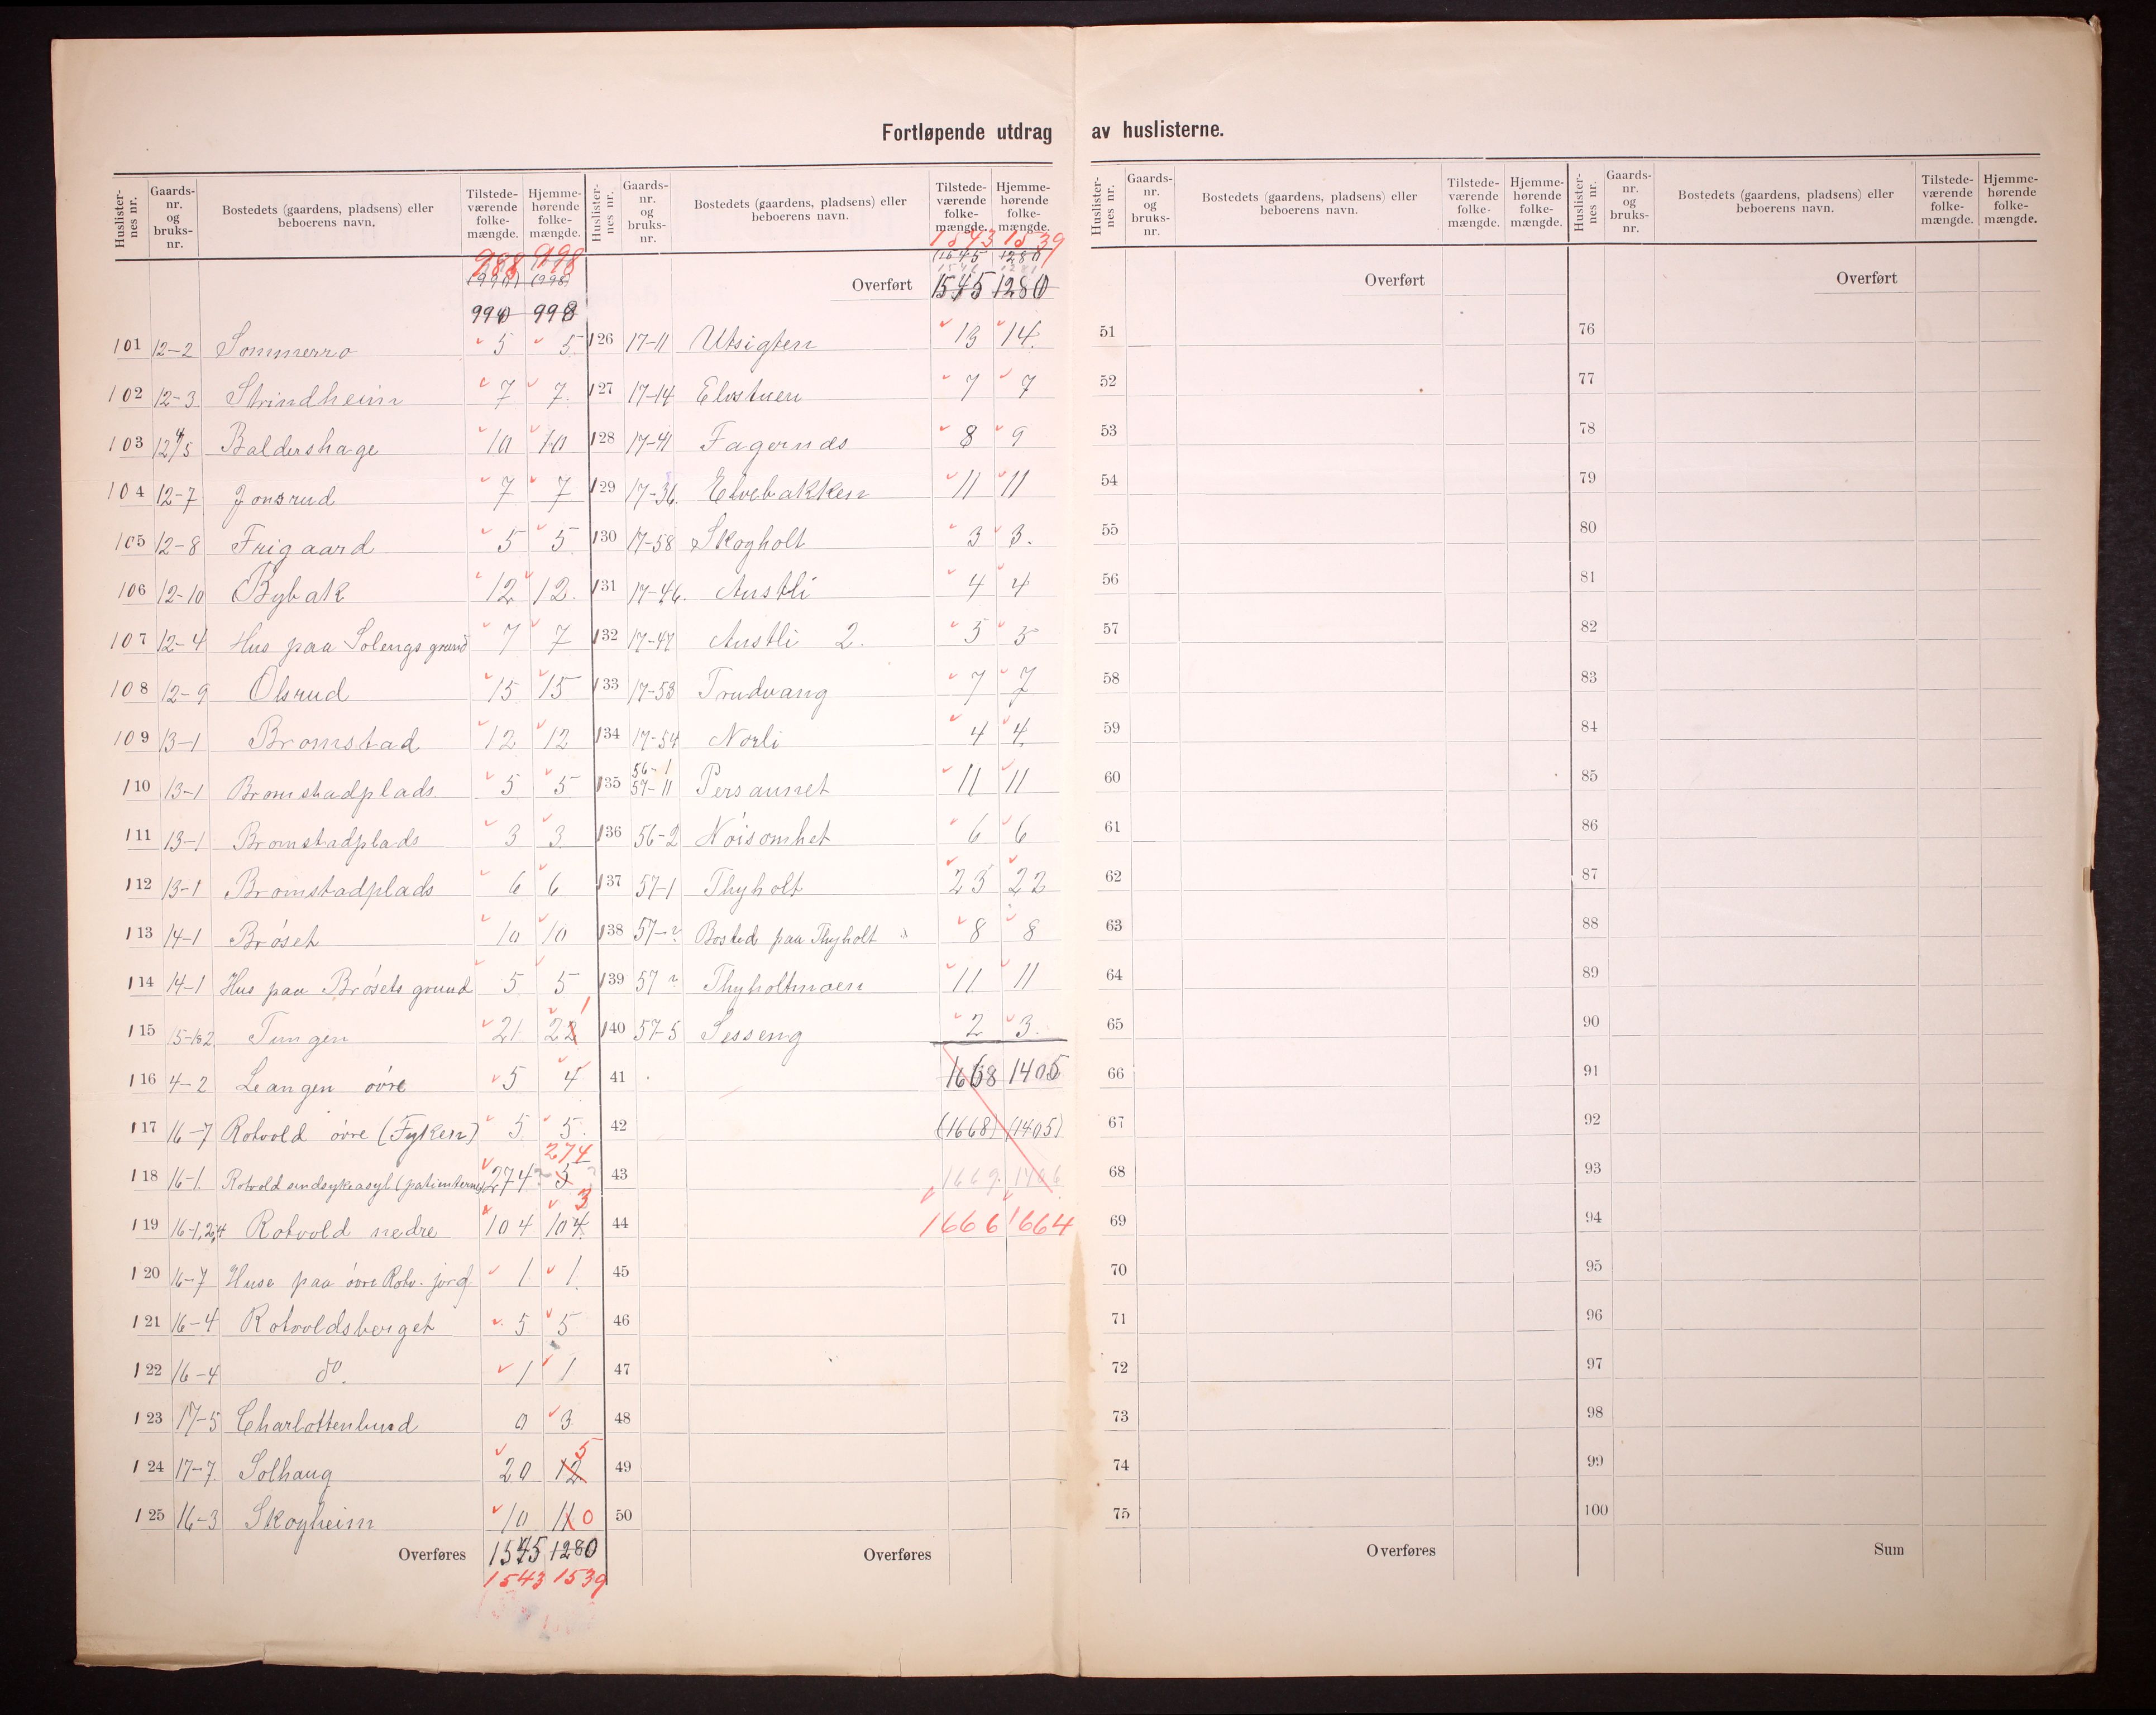 Fortløpende utdrag av huslisterne.
Huslisternes nr. Gaards-nr. og bruks-nr. Bostedets (gaardens, pladsens) eller beboerens navn. Tilstedeværende folkemængde. Hjemmehørende folkemængde.
988 998
(990) (998)
990 998
101 12-2 Sommerro 5 5
102 12-3 Strindheim 7 7
103 12 4/5 Baldershage 10 10
104 12-7 Jonsrud 7 7
105 12-8 Frigaard 5 5
106 12-10 Bybak 12 12
107 12-4 Hus paa Solengs grund 7 7
108 12-9 Olsrud 15 15
109 13-1 Bromstad 12 12
110 13-1 Bromstadplads 5 5
111 13-1 Bromstadplads 3 3
112 13-1 Bromstadplads 6 6
113 14-1 Brøset 10 10
114 14-1 Hus paa Brøsets grund 5 5
115 15-1&2 Tungen 21 22 1
116 4-2 Leangen øvre 5 4
117 16-7 Rotvold øvre (Fyken) 5 5
118 16-1 Rotvold sindsykeasyl (patienterne) 274 5 274
119 16-1,2,4 Rotvold nedre 104 104 3
120 16-7 Huse paa øvre Rotv. jord 1 1
121 16-4 Rotvoldsberget 5 5
122 16-4 do. 1 1
123 17-5 Charlottenlund 0 3
124 17-7 Solhaug 20 12 5
125 16-3 Skogheim 10 11 0
Overføres 1545 1280
1543 1539
Huslisternes nr. Gaards-nr. og bruks-nr. Bostedets (gaardens, pladsens) eller beboerens navn. Tilstedeværende folkemængde. Hjemmehørende folkemængde.
1543 1539
(1545 1280)
Overført 1545 1280
126 17-11 Utsigten 13 14
127 17-14 Elvstuen 7 7
128 17-41 Fagernæs 8 9
129 17-36 Elvebakken 11 11
130 17-58 Skogholt 3 3
131 17-46 Austli 4 4
132 17-47 Austli 2. 5 5
133 17-53 Trudvang 7 7
134 17-54 Norli 4 4
135 56-1 57-11 Persaunet 11 11
136 56-2 Nøisomhet 6 6
137 57-1 Thyholt 23 22
138 57-? Bosted paa Thyholt 8 8
139 57 ? Thyholtmoen 11 11
140 57-5 Sesseng 2 3
41 1668 1405
42 (1668) (1405)
43 1669 1406
44 1666 1664
45
46
47
48
49
50
Overføres
Huslisternes nr. Gaards-nr. og bruks-nr. Bostedets (gaardens, pladsens) eller beboerens navn. Tilstedeværende folkemængde. Hjemmehørende folkemængde.
Overført
51
52
53
54
55
56
57
58
59
60
61
62
63
64
65
66
67
68
69
70
71
72
73
74
75
Overføres
Huslisternes nr. Gaards-nr. og bruks-nr. Bostedets (gaardens, pladsens) eller beboerens navn. Tilstedeværende folkemængde. Hjemmehørende folkemængde.
Overført
76
77
78
79
80
81
82
83
84
85
86
87
88
89
90
91
92
93
94
95
96
97
98
99
100
Sum